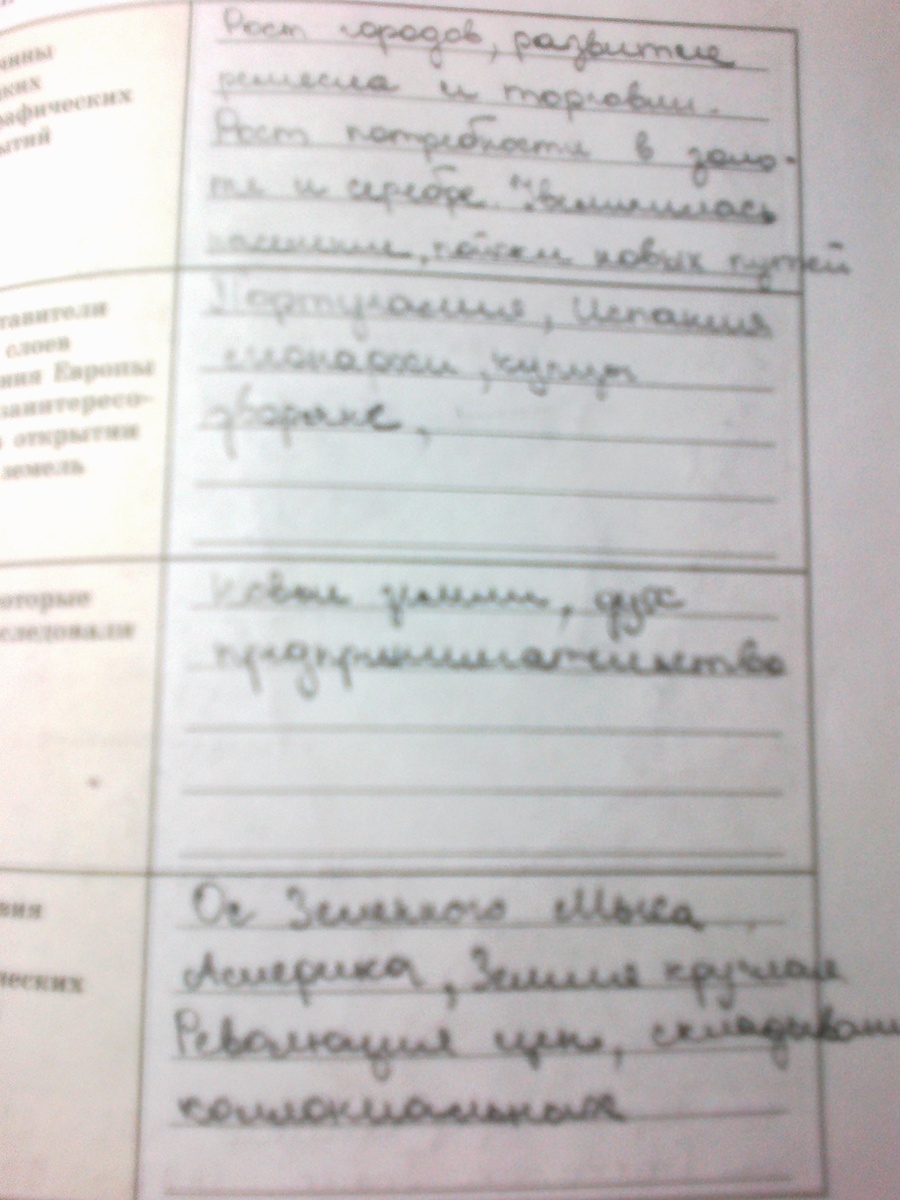 чины
ких
рафических
ытий
Рост городов, развитие
ремесла и торговли.
Рост потребности в золо-
те и серебре.
население, поиски новых путей
тавители
слоев
ния Европы
заинтересо-
открытии
земель
Португалия, Испания
монархи, купцы
дворяне,
оторые
следовали
Новые земли, дух
предпринимательства
вия
ческих
Ос Зеленого Мыса
Америка, Земля круглая
Революция цен, складывани